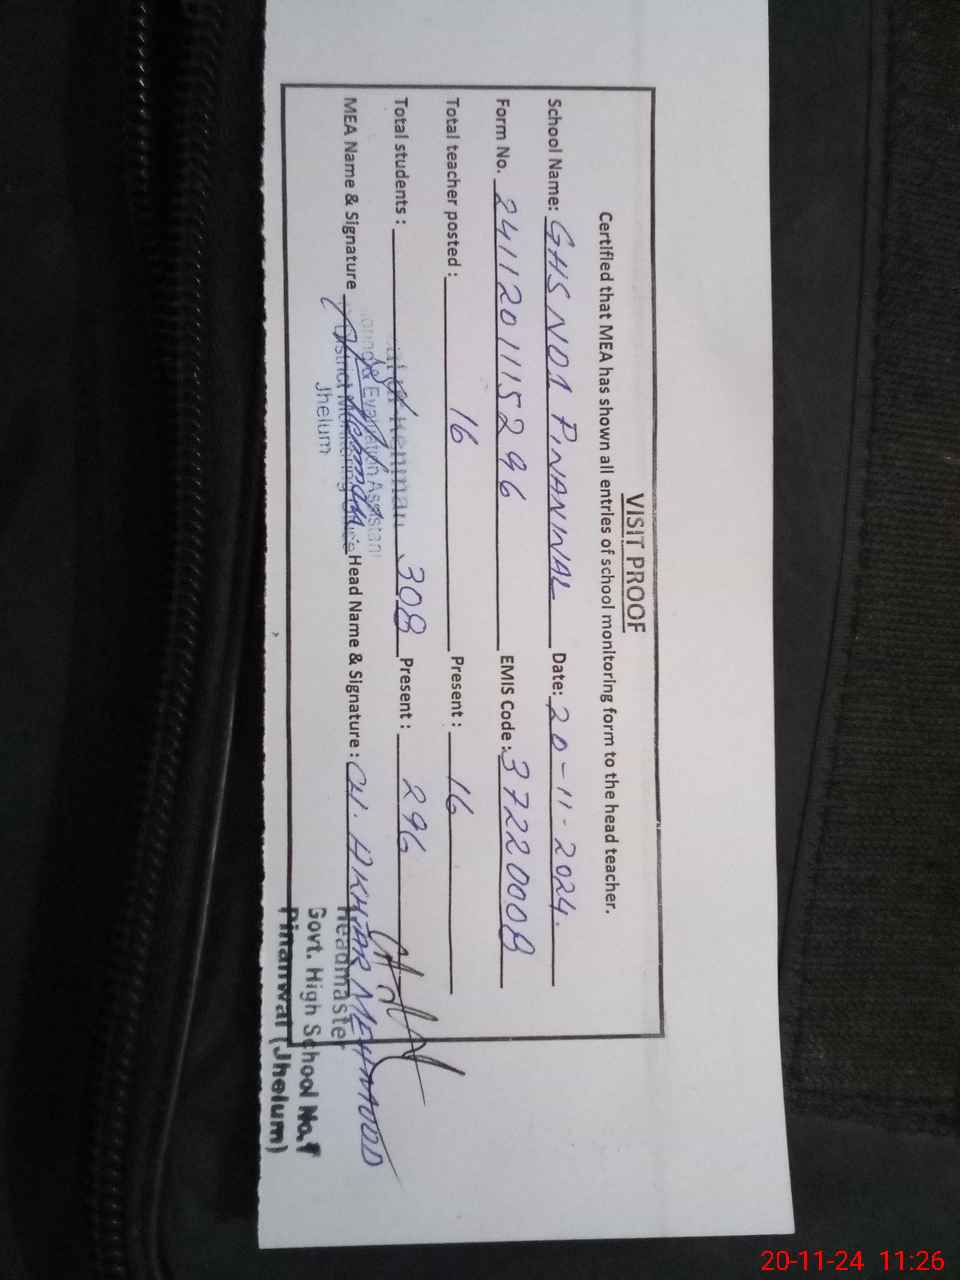 VISIT PROOF
Certified that MEA has shown all entries of school monitoring form to the head teacher.
School Name: GHS NO1 PINANWAL Date: 20-11-2024.
Form No. 241120115296 EMIS Code: 37220008
Total teacher posted: 16 Present: 16
Total students: 308 Present: 296
MEA Name & Signature Head Name & Signature: CH. AKHTAR MEHMOOD
Evaluation Assistant
District Monitoring
Jhelum
Headmaster
Govt. High School No.1
Pinanwal (Jhelum)
20-11-24 11:26